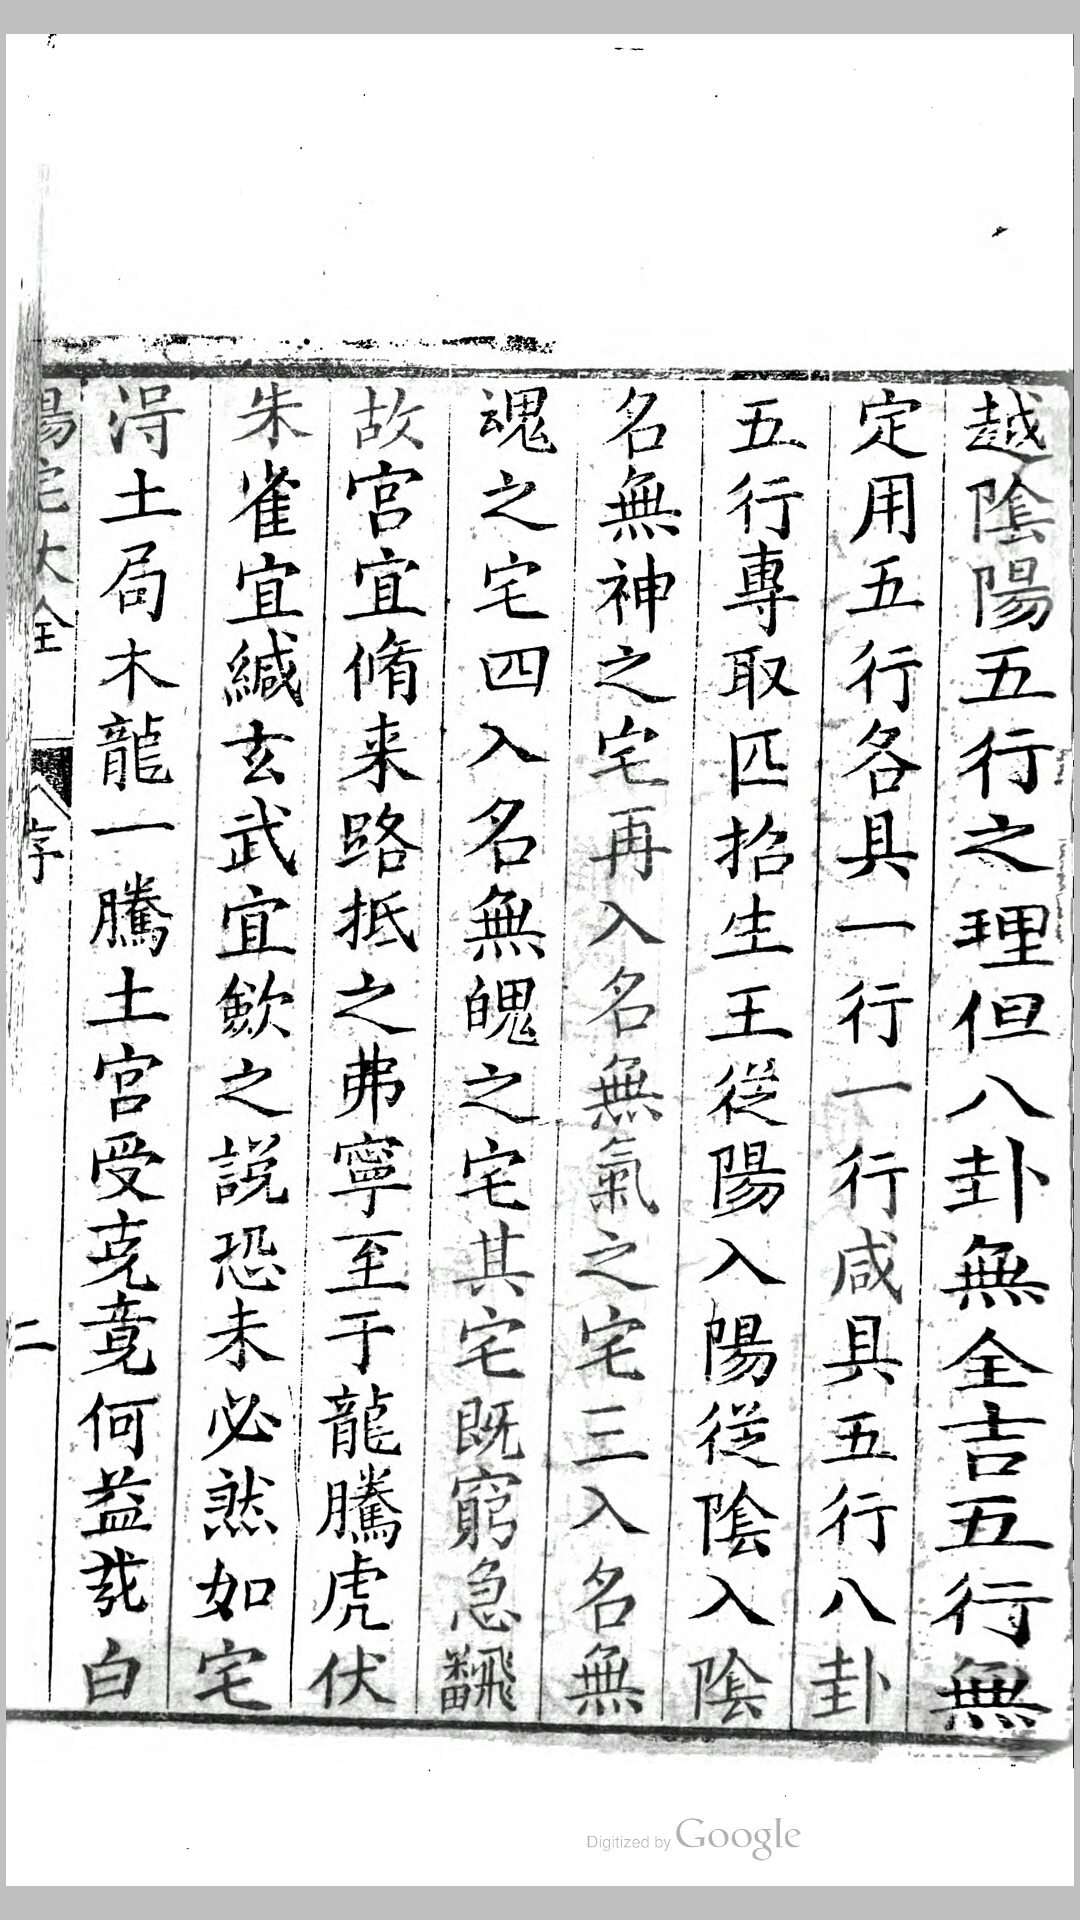 越陰陽五行之理但八卦無全吉五行無
定用五行各具一行一行咸具五行八卦
五行專取匹招生王從陽入陽從陰入陰
名無神之宅再入名無氣之宅三入名無
魂之宅四入名無魄之宅其宅既窮急飜
故宮宜脩来路抵之弗寧至于龍騰虎伏
朱雀宜緘玄武宜歛之説恐未必然如宅
淂土局木龍一騰土宮受克竟何益㦲白
陽宅大全
序
二
Digitized by Google